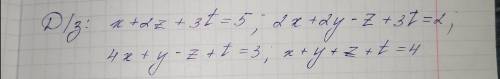 Д/з: x+2z+3t=5; 2x+2y-z+3t=2;
4x+y-z+t=3; x+y+z+t=4